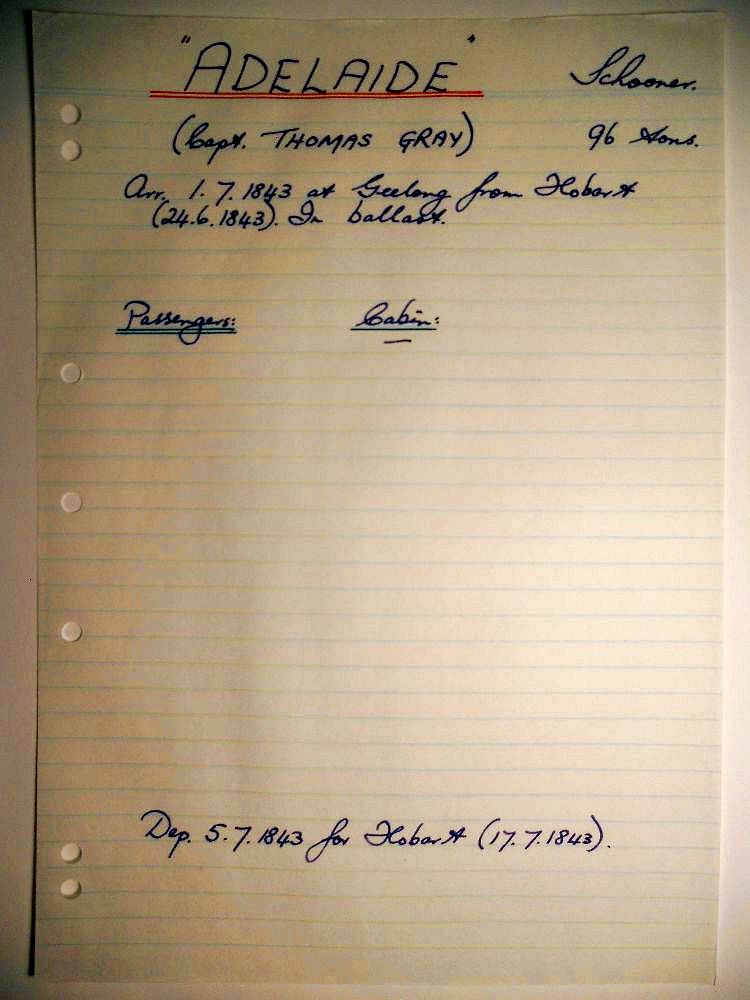 "ADELAIDE" Schooner.
(Capt. THOMAS GRAY) 96 tons.
Arr. 1.7.1843 at Geelong from Hobart
(24.6.1843). In ballast.
Passengers: Cabin:
—
Dep. 5.7.1843 for Hobart (17.7.1843).